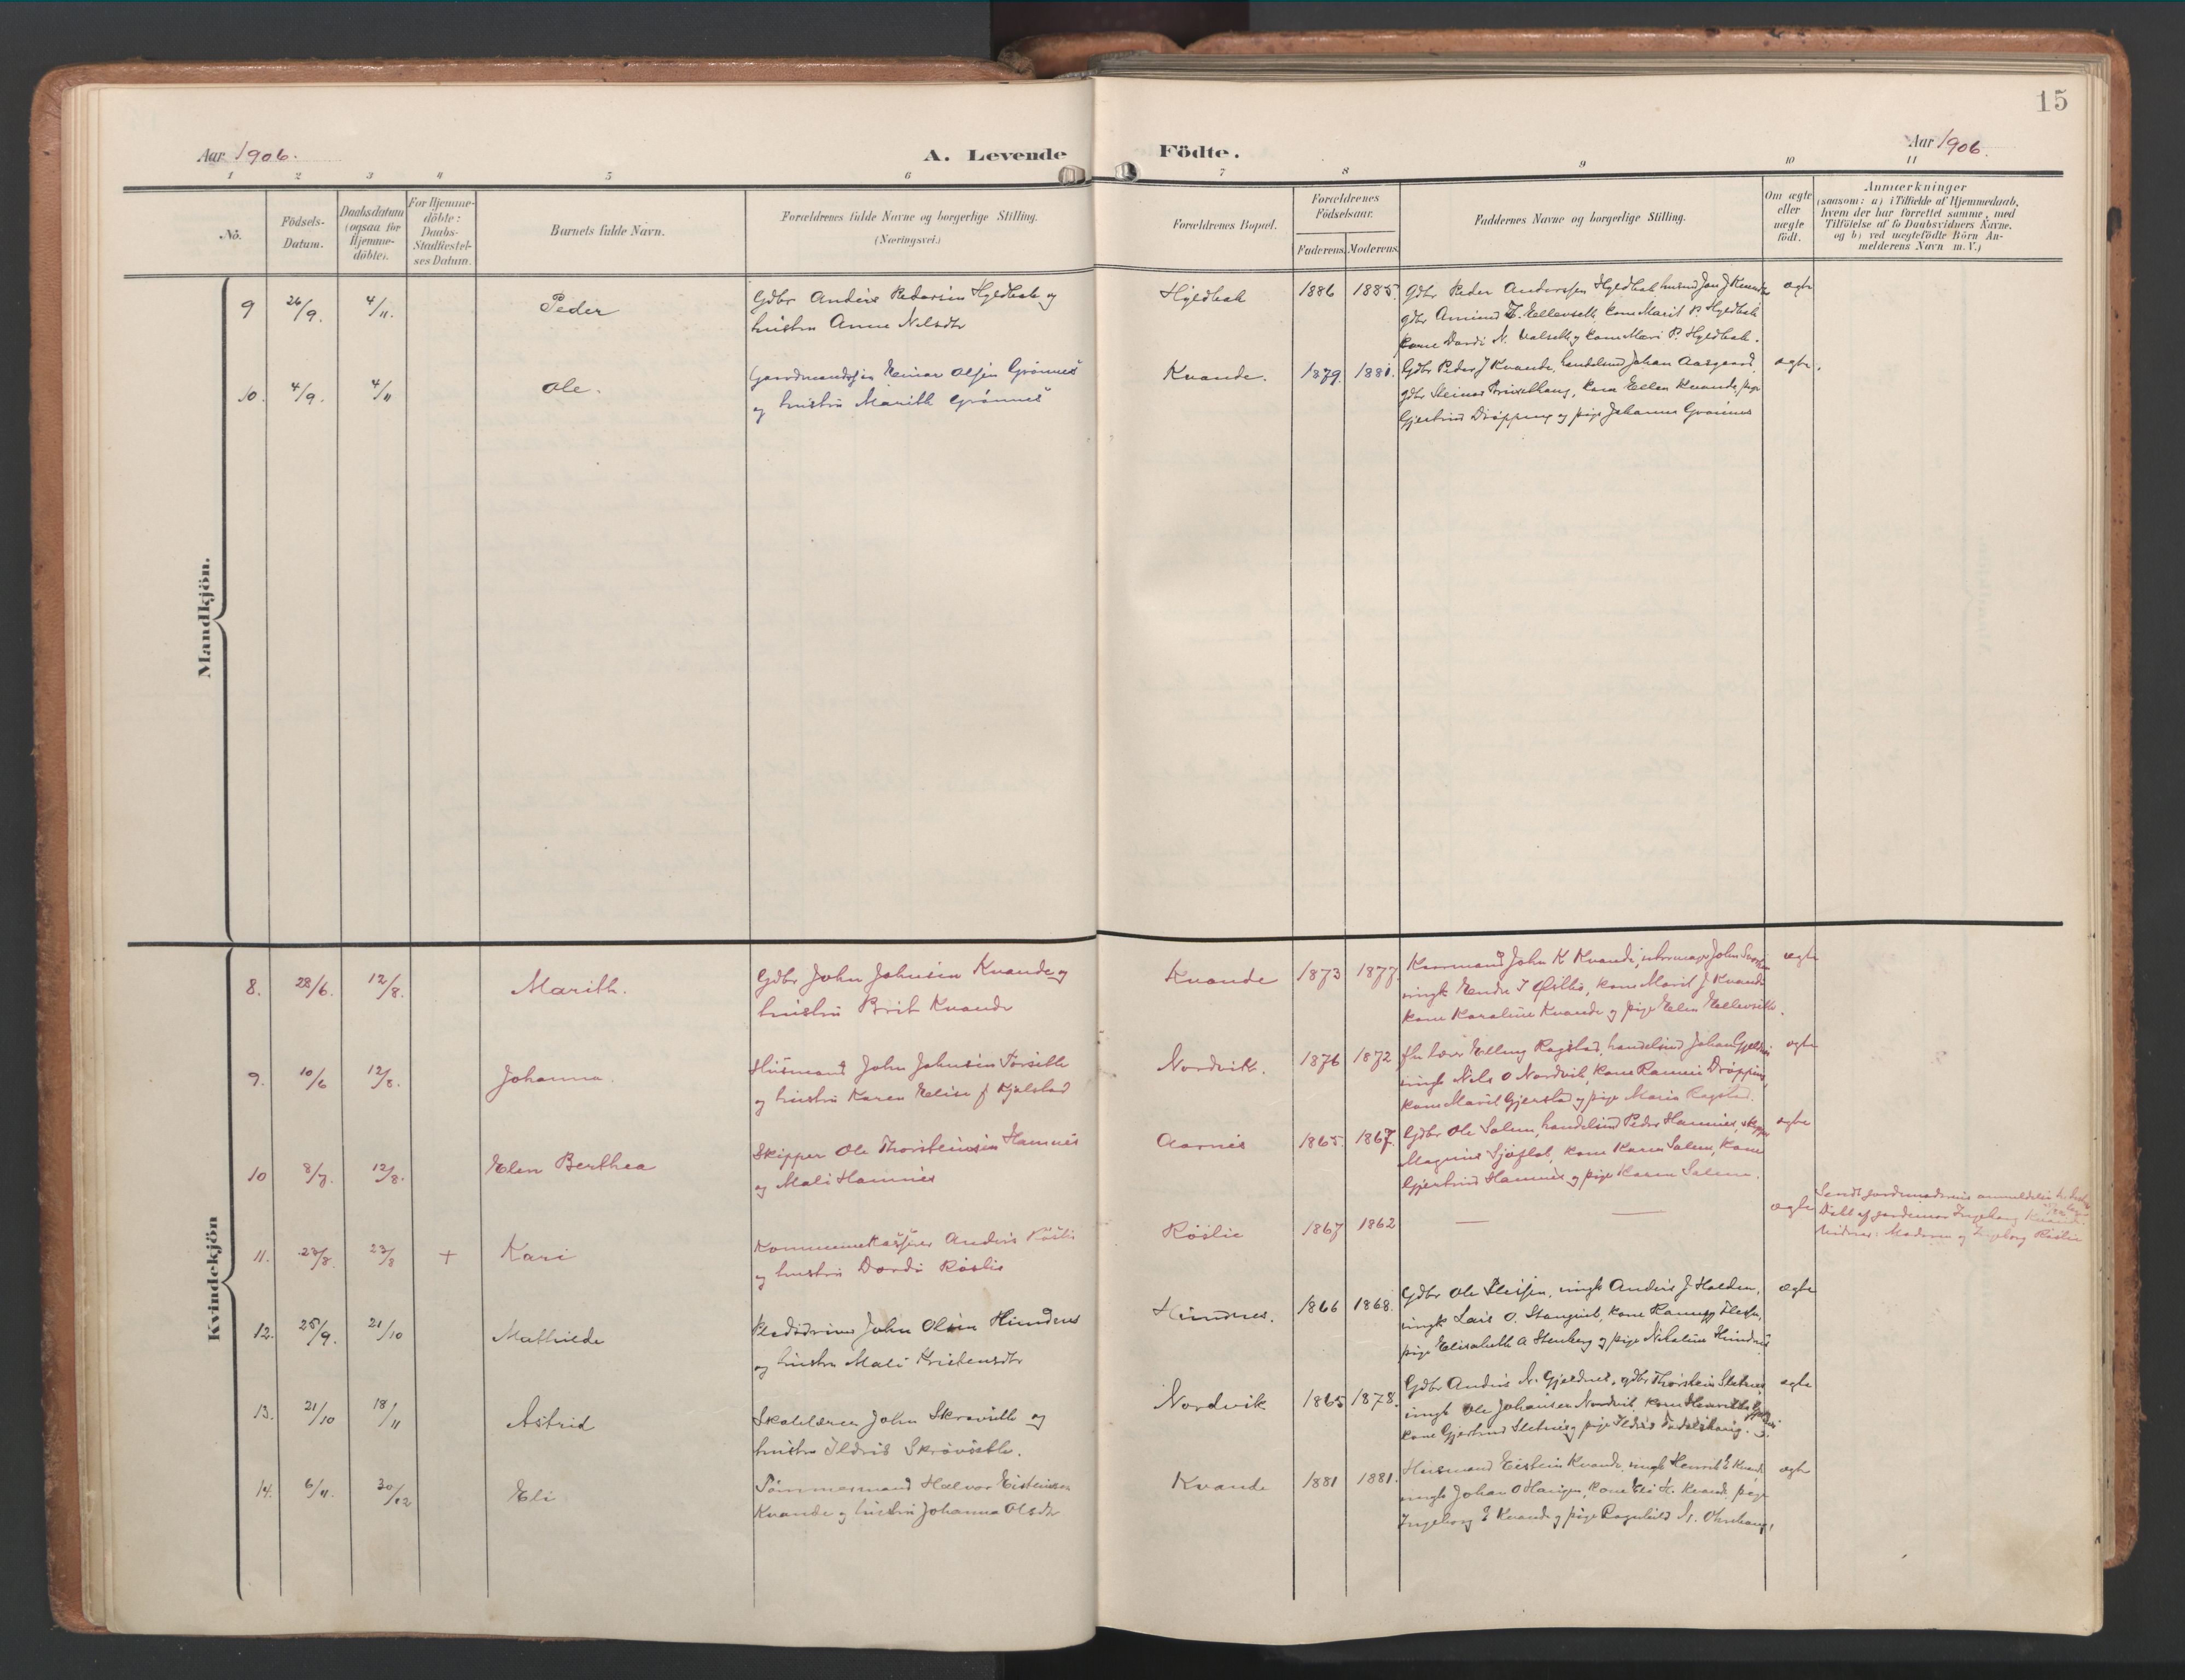 15
Aar 1906.
A. Levende Födte.
Aar 1906.
1 2 3 4 5 6 7 8 9 10 11
Nö.
Födsels-Datum.
Daabsdatum (ogsaa for Hjemme-döbte).
For Hjemme-döbte: Daabs-Stadfæstel-ses Datum.
Barnets fulde Navn.
Forældrenes fulde Navne og borgerlige Stilling.
(Næringsvei.)
Forældrenes Bopæl.
Forældrenes Födselsaar.
Faderens. Moderens.
Faddernes Navne og borgerlige Stilling.
Om ægte eller uægte födt.
Anmærkninger
(saasom: a) i Tilfælde af Hjemmedaab,
hvem der har forrettet samme, med
Tilföielse af to Daabsvidners Navne.
og b) ved uægtefödte Börn An-
melderens Navn m. V.)
Mandkjön.
9 26/9. 4/11. Peder
Gdbr Anders Pedersen Hyldbak og
hustru Anne Nilsdtr
Hyldbak 1886 1885.
Gdbr Peder Anderssen Hyldbak, husmd Jon J Kvande
gdbr Amund Ellevseth kone Marit P. Hyldbak
kone Dordi N. Valseth og kone Mari P. Hyldbak.
ægte
10. 4/9. 4/11 Ole.
Gaardmandssøn Einar Olsen Grønnes
og hustru Marith Grønnes
Kvande. 1879. 1881.
Gdbr Peder J Kvande, handelsmd Johan Aasgaard,
gdbr Steinar kone Ellen Kvande, pige
Gjertrud Drøpping og pige Johanne Grønnes
ægte.
Kvindekjön
8. 28/6. 12/8. Marith.
Gdbr John Johnsen Kvande og
hustru Brit Kvande
Kvande 1873 1877.
Kaarmand John K Kvande, John
ungk Endre I Østbø, kone Marit J. Kvande
kone Karoline Kvande og pige Elen Ellevseth.
ægte
9. 10/6 12/8. Johanna.
Husmand John Johnsen Torseth
og hustru Karen Elise f Kjelstad
Nordvik. 1876 1872
Elling Ragstad, handelsmd Johan Gjeldnes
ungk Nils O Nordvik, kone Drøpping,
kone Marit Gjerstad og pige Maria Ragstad.
ægte
10 8/7. 12/8. Elen Berthea
Skipper Ole Thorsteinsen Hamnes
og Mali Hamnes
Aarnes 1865. 1867.
Gdbr Ole Salen, handelsmd Peder Hamnes, skipper
Magnus Sjøflot, kone Karen Salen, kone
Gjertrud Hamnes og pige Karen Salen.
ægte
11. 23/8. 23/8 + Kari
Kommunekasserer Anders Røslie
og hustru Dordi Røslie
Røslie 1867 1862 — —
ægte
Sendt jordmoderens anmeldelse
Døbt af jordemor Ingeborg Kvande.
Vidner: Moderen og Ingeborg Røslie
12. 25/9. 21/10 Mathilde
Pladsdriver John Olsen Himdnes
og hustru Mali Kristensdtr
Himdnes. 1866 1868.
Gdbr Ole Fleisen, ungk Anders J Halden,
ungk Lars O. Stangvik, kone
pige Elisabeth A Stenberg og pige Nikoline Himdnes
ægte
13. 21/10 18/11 Astrid
Skolelærer John Skrøvseth og
hustru Ildrid Skrøvseth.
Nordvik 1865 1878.
Gdbr Anders N. Gjeldnes, gdbr Thorstein Sletnes,
ungk Ole Johansen Nordvik, kone Henrikke Gjeldnes
kone Gjertrud Sletnes og pige Ildrid
ægte
14. 6/11. 30/12 Eli
Tømmermand Halvor Eisteinsen
Kvande og hustru Johanna Olsdtr
Kvande 1881 1881.
Husmand Eistein Kvande, ungk Henrik E Kvande
ungk Johan O Haugen, kone Eli H. Kvande, pige
Ingeborg E Kvande og pige Ragnhild
ægte